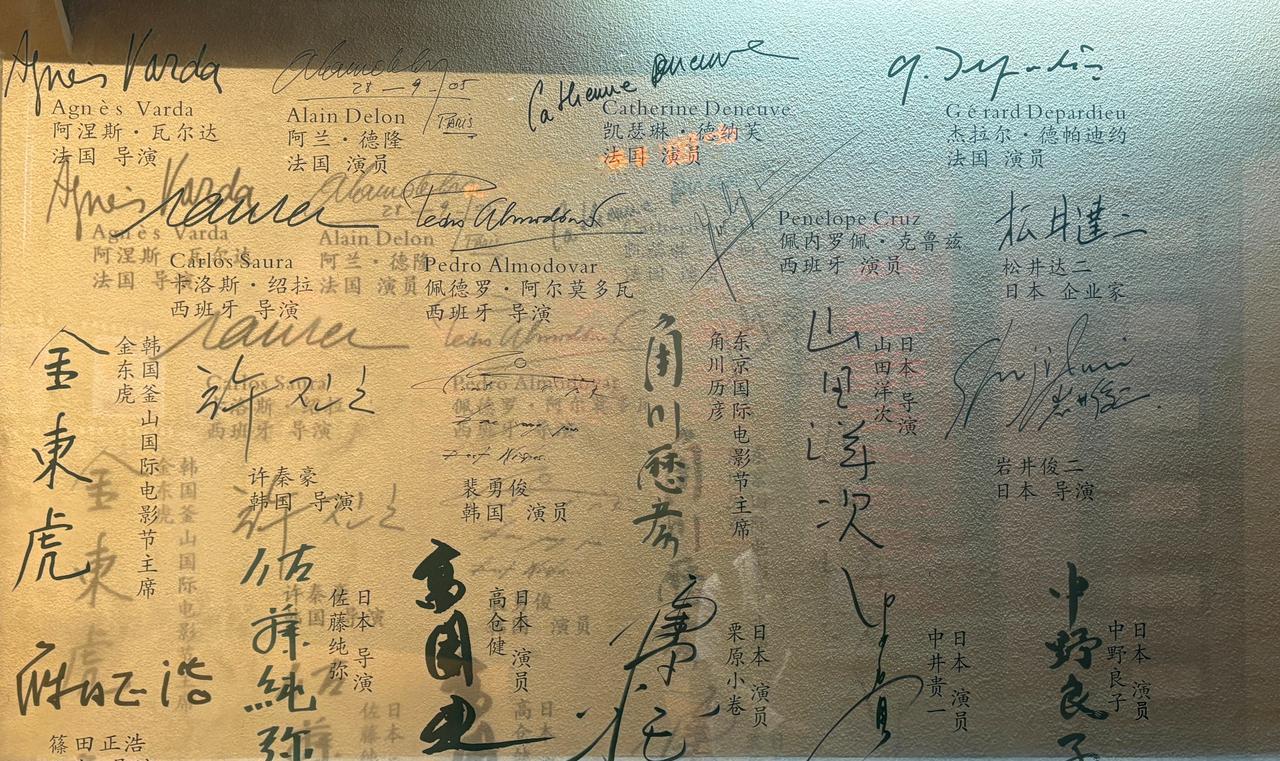 Agnès Varda
Agnès Varda
阿涅斯·瓦尔达
法国 导演
28-9-05
PARIS
Alain Delon
阿兰·德隆
法国 演员
Catherine Deneuve
Catherine Deneuve
凯瑟琳·德纳芙
法国 演员
G. Depardieu
Gérard Depardieu
杰拉尔·德帕迪约
法国 演员
Carlos Saura
卡洛斯·绍拉
西班牙 导演
Pedro Almodovar
佩德罗·阿尔莫多瓦
西班牙 导演
Penelope Cruz
佩内罗佩·克鲁兹
西班牙 演员
松井達二
松井达二
日本 企业家
金東虎
韩国釜山国际电影节主席
金东虎
许秦豪
韩国 导演
裴勇俊
韩国 演员
角川
东京国际电影节主席
角川历彦
山田洋次
日本 导演
山田洋次
岩井俊二
日本 导演
佐藤純弥
日本 导演
佐藤纯弥
高
日本 演员
高仓健
日本 演员
栗原小卷
日本 演员
中井贵一
中野良子
日本 演员
中野良子
篠田正浩